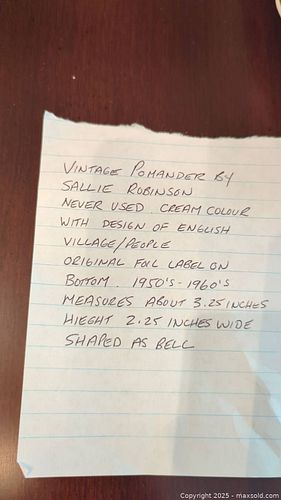 VINTAGE POMANDER BY
SALLIE ROBINSON
NEVER USED. CREAM COLOUR
WITH DESIGN OF ENGLISH
VILLAGE/PEOPLE
ORIGINAL FOIL LABEL ON
BOTTOM. 1950'S-1960'S
MEASURES ABOUT 3.25 INCHES
HIEGHT 2.25 INCHES WIDE
SHAPED AS BELL
Copyright 2025 - maxsold.com